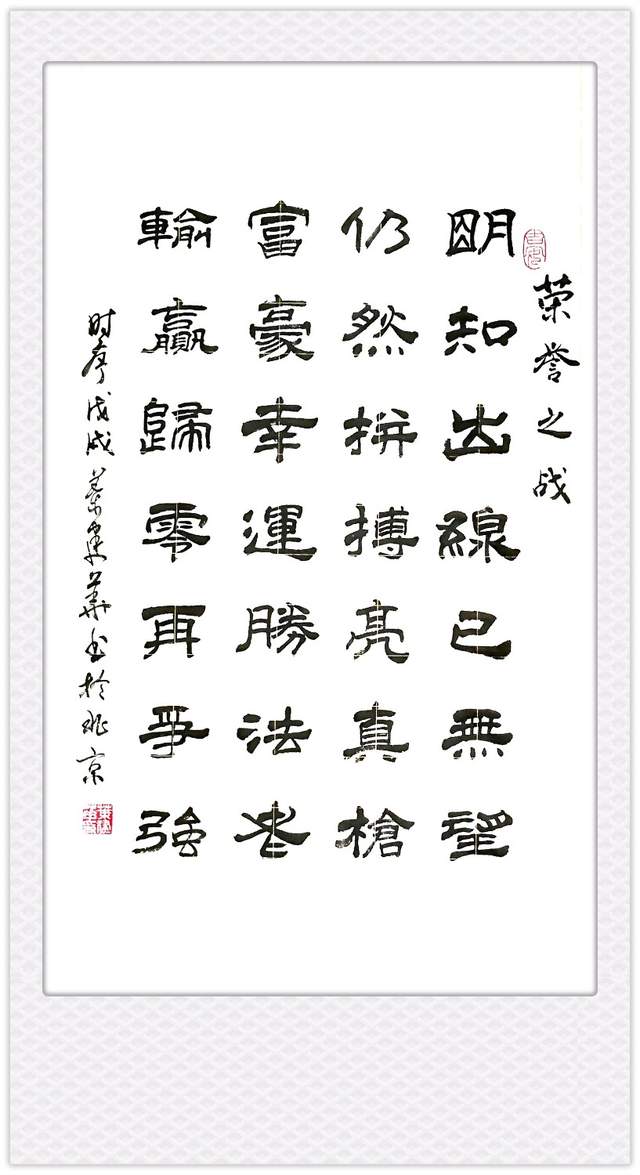 荣誉之战
明知出線已無望
仍然拼搏亮真槍
富豪幸運勝法老
輸贏歸零再爭強
时序戊戌建華书於北京